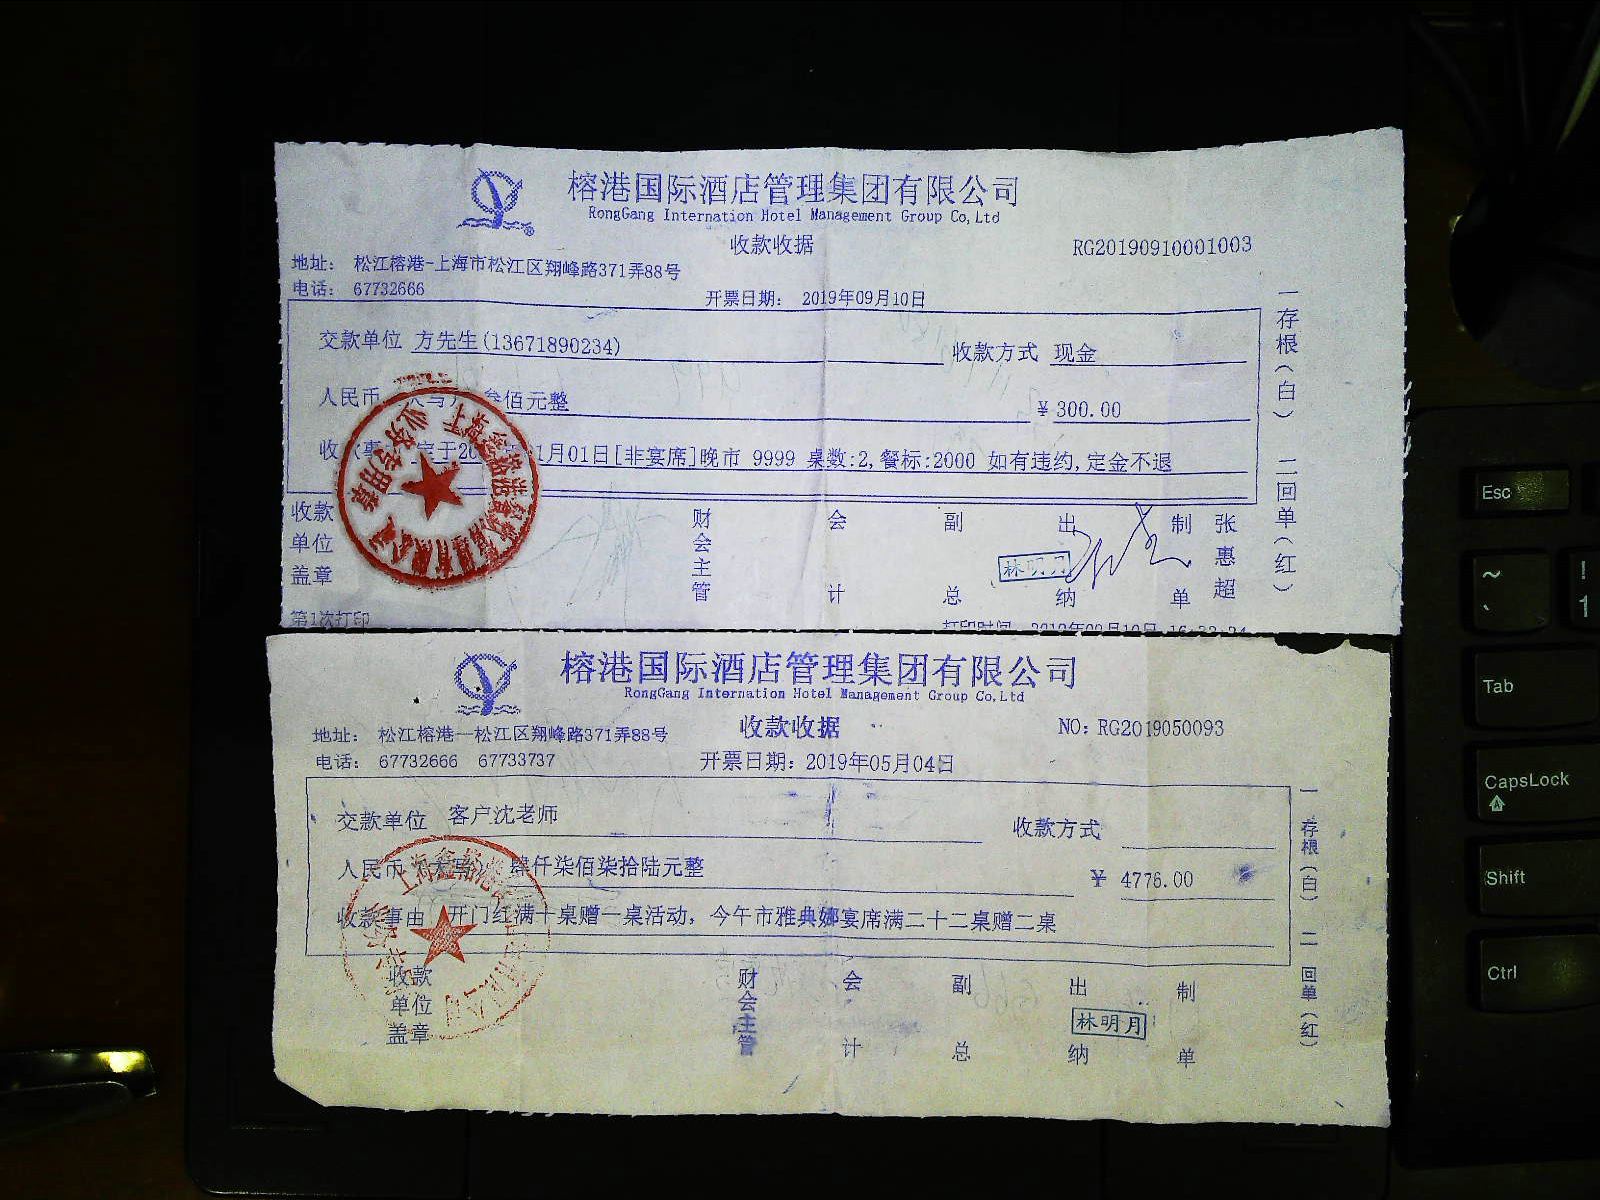 榕港国际酒店管理集团有限公司
RongGang Internation Hotel Management Group Co,Ltd
收款收据
RG20190910001003
地址： 松江榕港-上海市松江区翔峰路371弄88号
电话： 67732666
开票日期： 2019年09月10日
交款单位 方先生(13671890234)
收款方式 现金
人民币 叁佰元整
￥300.00
收 定于20 1月01日[非宴席]晚市 9999 桌数:2,餐标:2000 如有违约,定金不退
收款单位盖章
财会主管
会计
副总
出纳
制单
张惠超
林明月
业务专用章
一存根(白) 二回单(红)
第1次打印
打印时间 2019年09月10日 16:33:24
榕港国际酒店管理集团有限公司
RongGang Internation Hotel Management Group Co,Ltd
收款收据
NO: RG2019050093
地址： 松江榕港一松江区翔峰路371弄88号
电话： 67732666 67733737
开票日期： 2019年05月04日
交款单位 客户沈老师
收款方式
人民币 肆仟柒佰柒拾陆元整
￥ 4776.00
收款事由 开门红满十桌赠一桌活动，今午市雅典娜宴席满二十二桌赠二桌
收款单位盖章
财会主管
会计
副总
出纳
制单
林明月
一存根(白) 二回单(红)
Esc
~
`
!
1
Tab
CapsLock
Shift
Ctrl